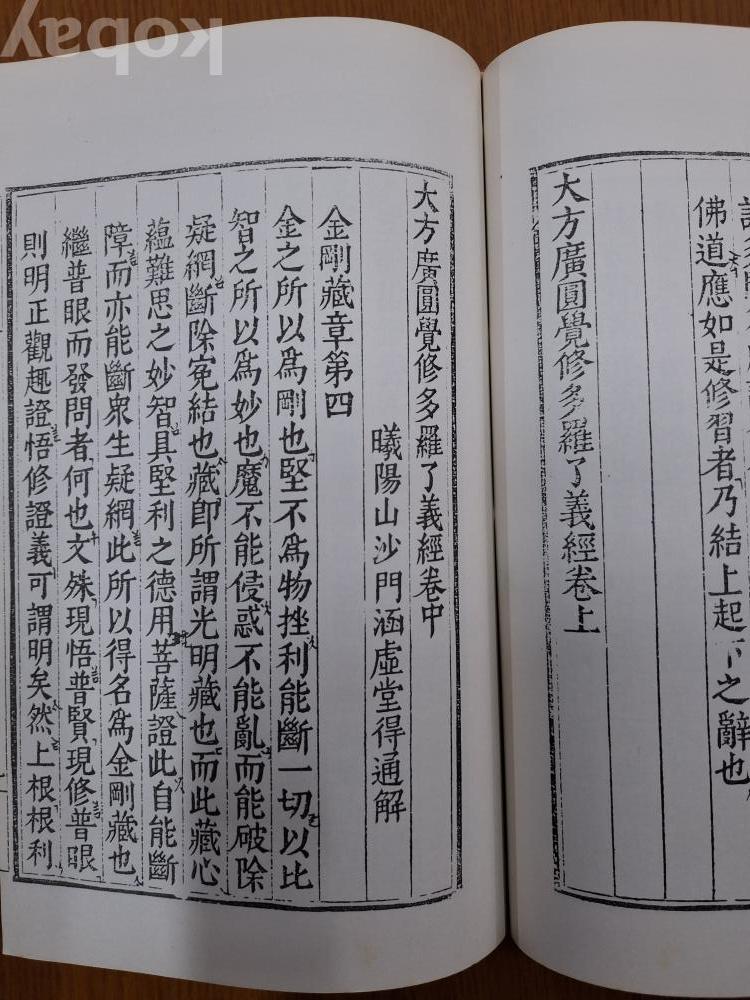 佛道應如是修習者乃結上起下之辭也
大方廣圓覺修多羅了義經卷上
大方廣圓覺修多羅了義經卷中
曦陽山沙門涵虛堂得通解
金剛藏章第四
金之所以爲剛也堅不爲物挫利能斷一切以比
智之所以爲妙也魔不能侵惑不能亂而能破除
疑網斷除寃結也藏卽所謂光明藏也而此藏心
蘊難思之妙智具堅利之德用菩薩證此自能斷
障而亦能斷衆生疑網此所以得名爲金剛藏也
繼普眼而發問者何也文殊現悟普賢現修普眼
則明正觀趣證悟修證義可謂明矣然上根根利
kobay